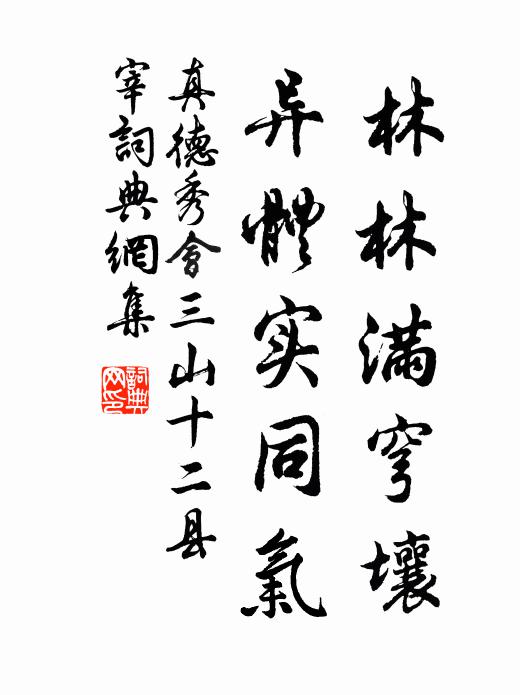 林林滿穹壤
异體实同氣
真德秀會三山十二县
宰詞典網集
詞典网印